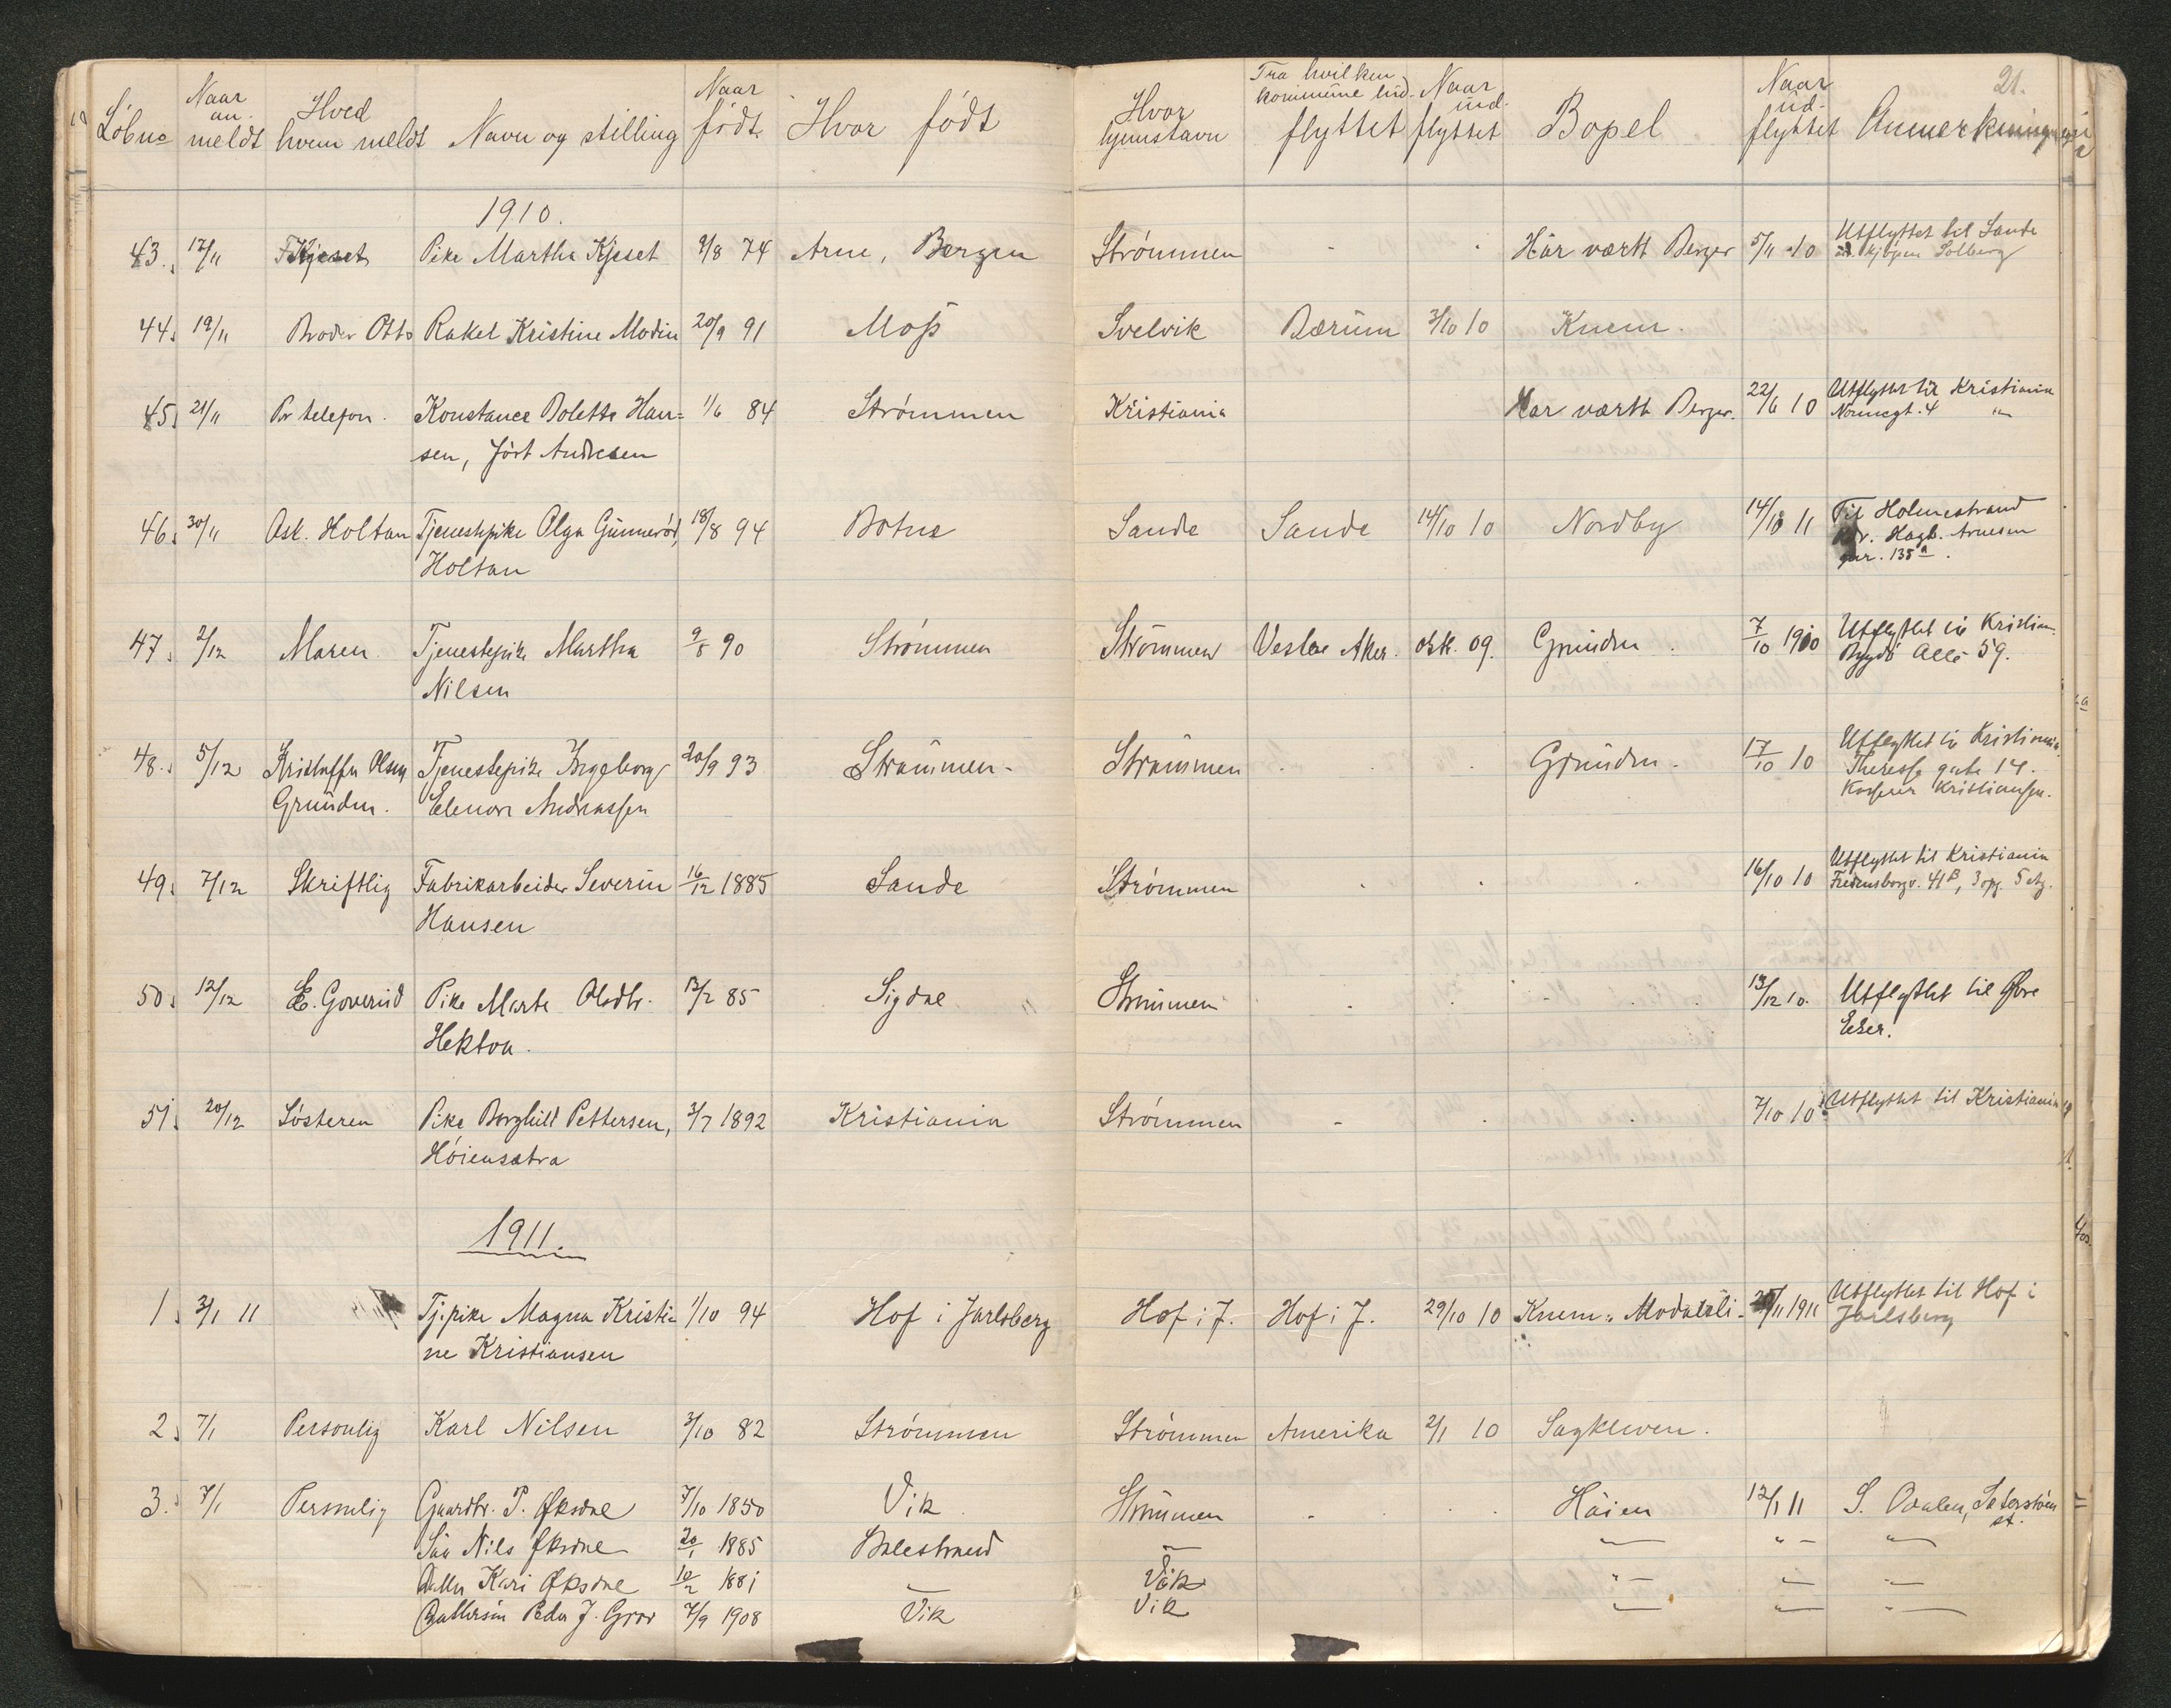 21.
Löbno Naar an- meldt Hved hvem meldt Navn og stilling Naar födt Hvor födt Hvor hjemstavn Fra hvilken kommune ind- flyttet Naar ind- flyttet Bopel Naar ud- flyttet Anmerkninger
1910.
43. 12/11 F Kjeset Pike Martha Kjeset 9/8 74 Arne, Bergen Strömmen - - Har vært Berger 5/11 10 Utflyttet til Sande
Solberg
44. 19/11 Broder Otto Rakel Kristine Modin 20/9 91 Moss Svelvik Bærum 3/10 10 Knem.
45. 21/11 Pr telefon. Konstance Bolette Han- 1/6 84 Strömmen Kristiania Har vært Berger. 22/6 10 Utflyttet til Kristiania
sen, födt Andresen 4 "
46. 30/11 Ask. Holtan Tjenestepike Olga Gunneröd, 18/8 94 Botne Sande Sande 14/10 10 Nordby 14/10 11 Til Holmestrand
Holtan Hagb. Arnesen
gnr. 138a.
47. 2/12 Maren Tjenestepike Martha 9/8 90 Strömmen Strömmen Vestre Aker. okt. 09. Grunden. 7/10 1910 Utflyttet til Kristian.
Nilsen Bygdö Allé 59.
48. 5/12 Kristoffer Olsen Tjenestepike Ingeborg 20/9 93 Strömmen - Strömmen . . . Grunden. 17/10 10 Utflyttet til Kristiania,
Grunden. Elenore Andreassen Theress gate 14.
Kasserer Kristiansen.
49. 7/12 Skriftlig Fabrikarbeider Severin 16/12 1885 Sande Strömmen . . . 16/10 10 Utflyttet til Kristiania
Hansen Fredensborgv. 41B, 3 opg. 5 etg.
50. 12/12 E. Goverud Pike Marte Olsdtr. 13/2 85 Sigdal Strömmen . . . 13/12 10. Utflyttet til Øvre
Hektoen. Eker.
51. 20/12 Sösteren Pike Borghild Pettersen, 3/7 1892 Kristiania Strömmen - . . 7/10 10 Utflyttet til Kristiania
Höiensætra
1911.
1. 3/1 11 Tj.pike Magna Kristi- 1/10 94 Hof i Jarlsberg Hof i J. Hof i J. 29/10 10 Knem, 1911 Utflyttet til Hof i
ne Kristiansen Jarlsberg
2. 7/1 Personlig Karl Nilsen 3/10 82 Strömmen Strömmen Amerika 2/1 10 Sagkleven.
3. 7/1 Personlig Gaardbr. P. Øksdal 7/10 1850 Vik Strömmen . . . Höien 12/1 11 S. Odalen, Sæterstöen
st.
Sön Nils Øksdal 20/1 1885 Balestrand " " " "
Datter Kari Øksdal 10/2 1881 " Vik " " "
Dattersön Peder J. Grov 7/9 1908 Vik Vik " " "